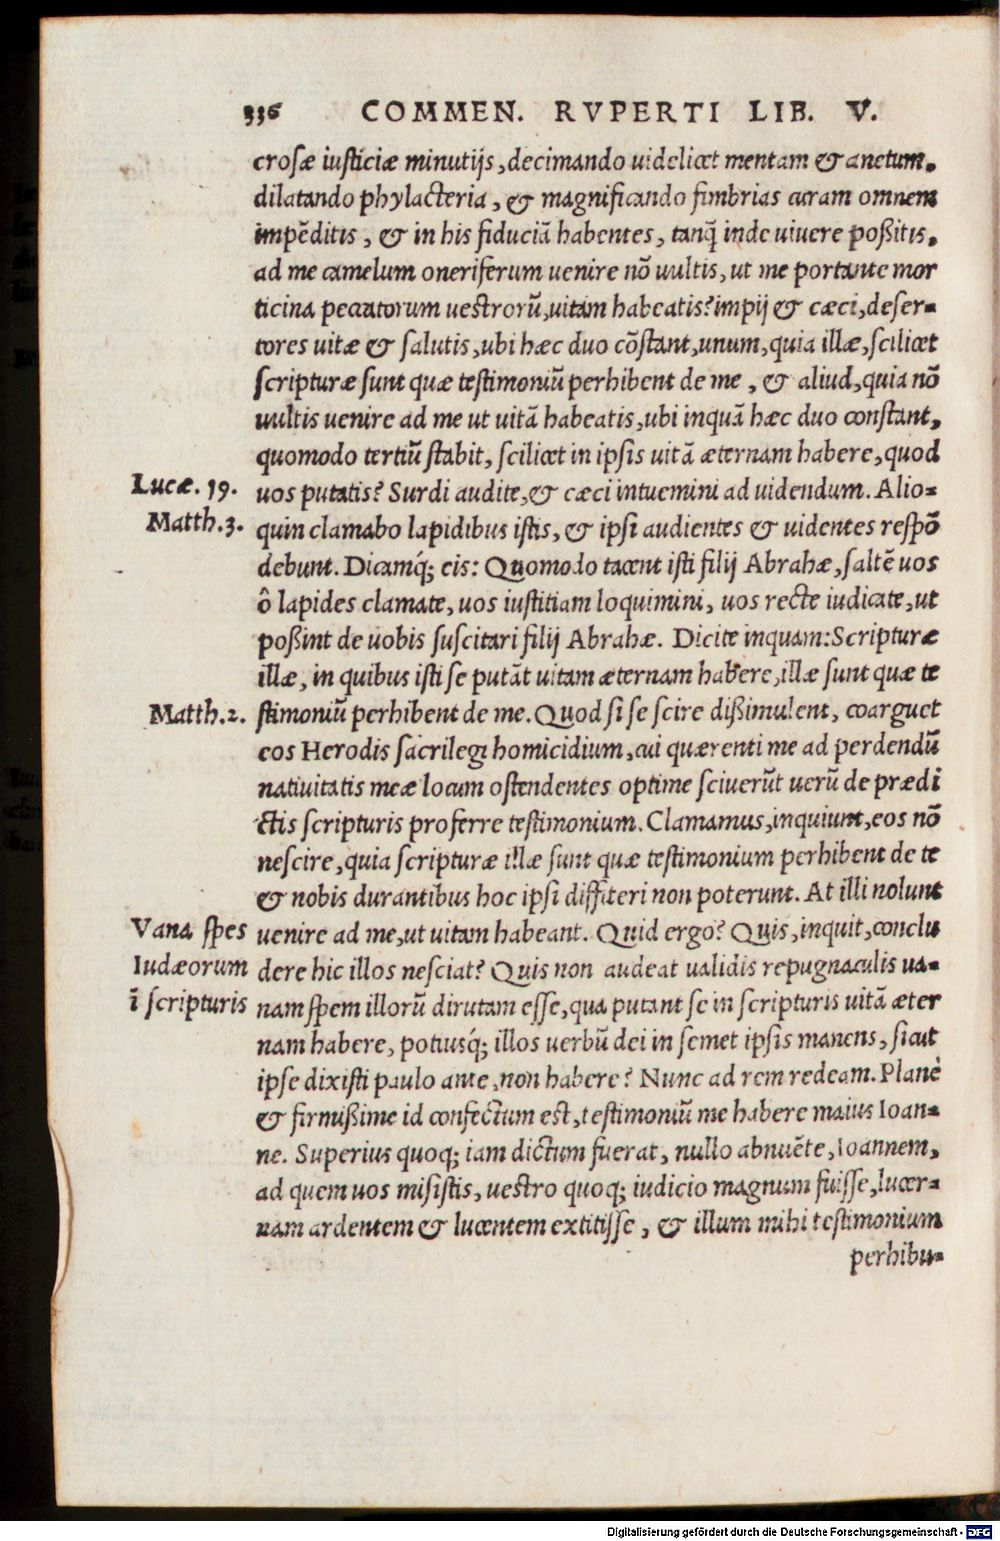 336 COMMEN. RVPERTI LIB. V.
crosæ iusticiæ minutijs, decimando uidelicet mentam & anetum.
dilatando phylacteria, & magnificando fimbrias curam omnem
impẽditis, & in his fiduciã habentes, tanq̃ inde uiuere poßitis.
ad me camelum oneriferum uenire nõ uultis, ut me portante mor
ticina peccatorum uestrorũ, uitam habeatis? impij & cæci, deser-
tores uitæ & salutis, ubi hæc duo cõstant, unum, quia illæ, scilicet
scripturæ sunt quæ testimoniũ perhibent de me, & aliud, quia nõ
uultis uenire ad me ut uitã habeatis, ubi inquã hæc duo constant,
quomodo tertiũ stabit, scilicet in ipsis uitã æternam habere, quod
Lucæ. 19. uos putatis? Surdi audite, & cæci intuemini ad uidendum. Alio-
Matth. 3. quin clamabo lapidibus istis, & ipsi audientes & uidentes respõ
debunt. Dicamq́; eis: Quomodo tacent isti filij Abrahæ, saltẽ uos
ô lapides clamate, uos iustitiam loquimini, uos recte iudicate, ut
poßint de uobis suscitari filij Abrahæ. Dicite inquam: Scripturæ
illæ, in quibus isti se putãt uitam æternam habere, illæ sunt quæ te
Matth. 2. stimoniũ perhibent de me. Quod si se scire dißimulent, coarguet
eos Herodis sacrilegi homicidium, cui quærenti me ad perdendũ
natiuitatis meæ locum ostendentes optime sciuerũt uerũ de prædi
ctis scripturis proferre testimonium. Clamamus, inquiunt, eos nõ
nescire, quia scripturæ illæ sunt quæ testimonium perhibent de te
& nobis durantibus hoc ipsi diffiteri non poterunt. At illi nolunt
Vana spes uenire ad me, ut uitam habeant. Quid ergo? Quis, inquit, conclu
Iudæorum dere hic illos nesciat? Quis non audeat ualidis repugnaculis ua-
ĩ scripturis nam spem illorũ dirutam esse, qua putant se in scripturis uitã æter
nam habere, potiusq́; illos uerbũ dei in semet ipsis manens, sicut
ipse dixisti paulo ante, non habere? Nunc ad rem redeam. Planè
& firmißime id confectum est, testimoniũ me habere maius Ioan-
ne. Superius quoq; iam dictum fuerat, nullo abnuẽte, Ioannem,
ad quem uos misistis, uestro quoq; iudicio magnum fuisse, lucer-
nam ardentem & lucentem extitisse, & illum mihi testimonium
perhibu-
Digitalisierung gefördert durch die Deutsche Forschungsgemeinschaft - DFG